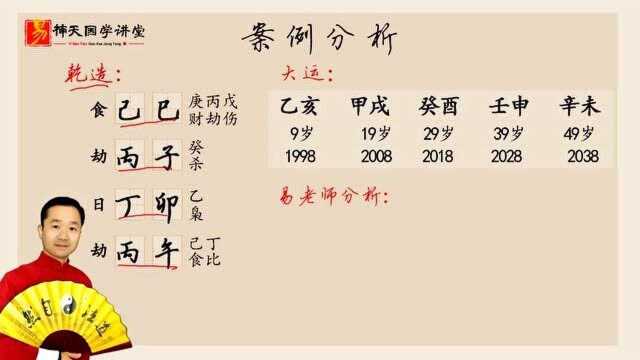 易 天国学讲堂
案例分析
乾造：
食 己 巳 庚丙戊
财劫伤
劫 丙 子 癸
杀
日 丁 卯 乙
枭
劫 丙 午 己丁
食比
大运：
乙亥 甲戌 癸酉 壬申 辛未
9岁 19岁 29岁 39岁 49岁
1998 2008 2018 2028 2038
易老师分析：
道法自然